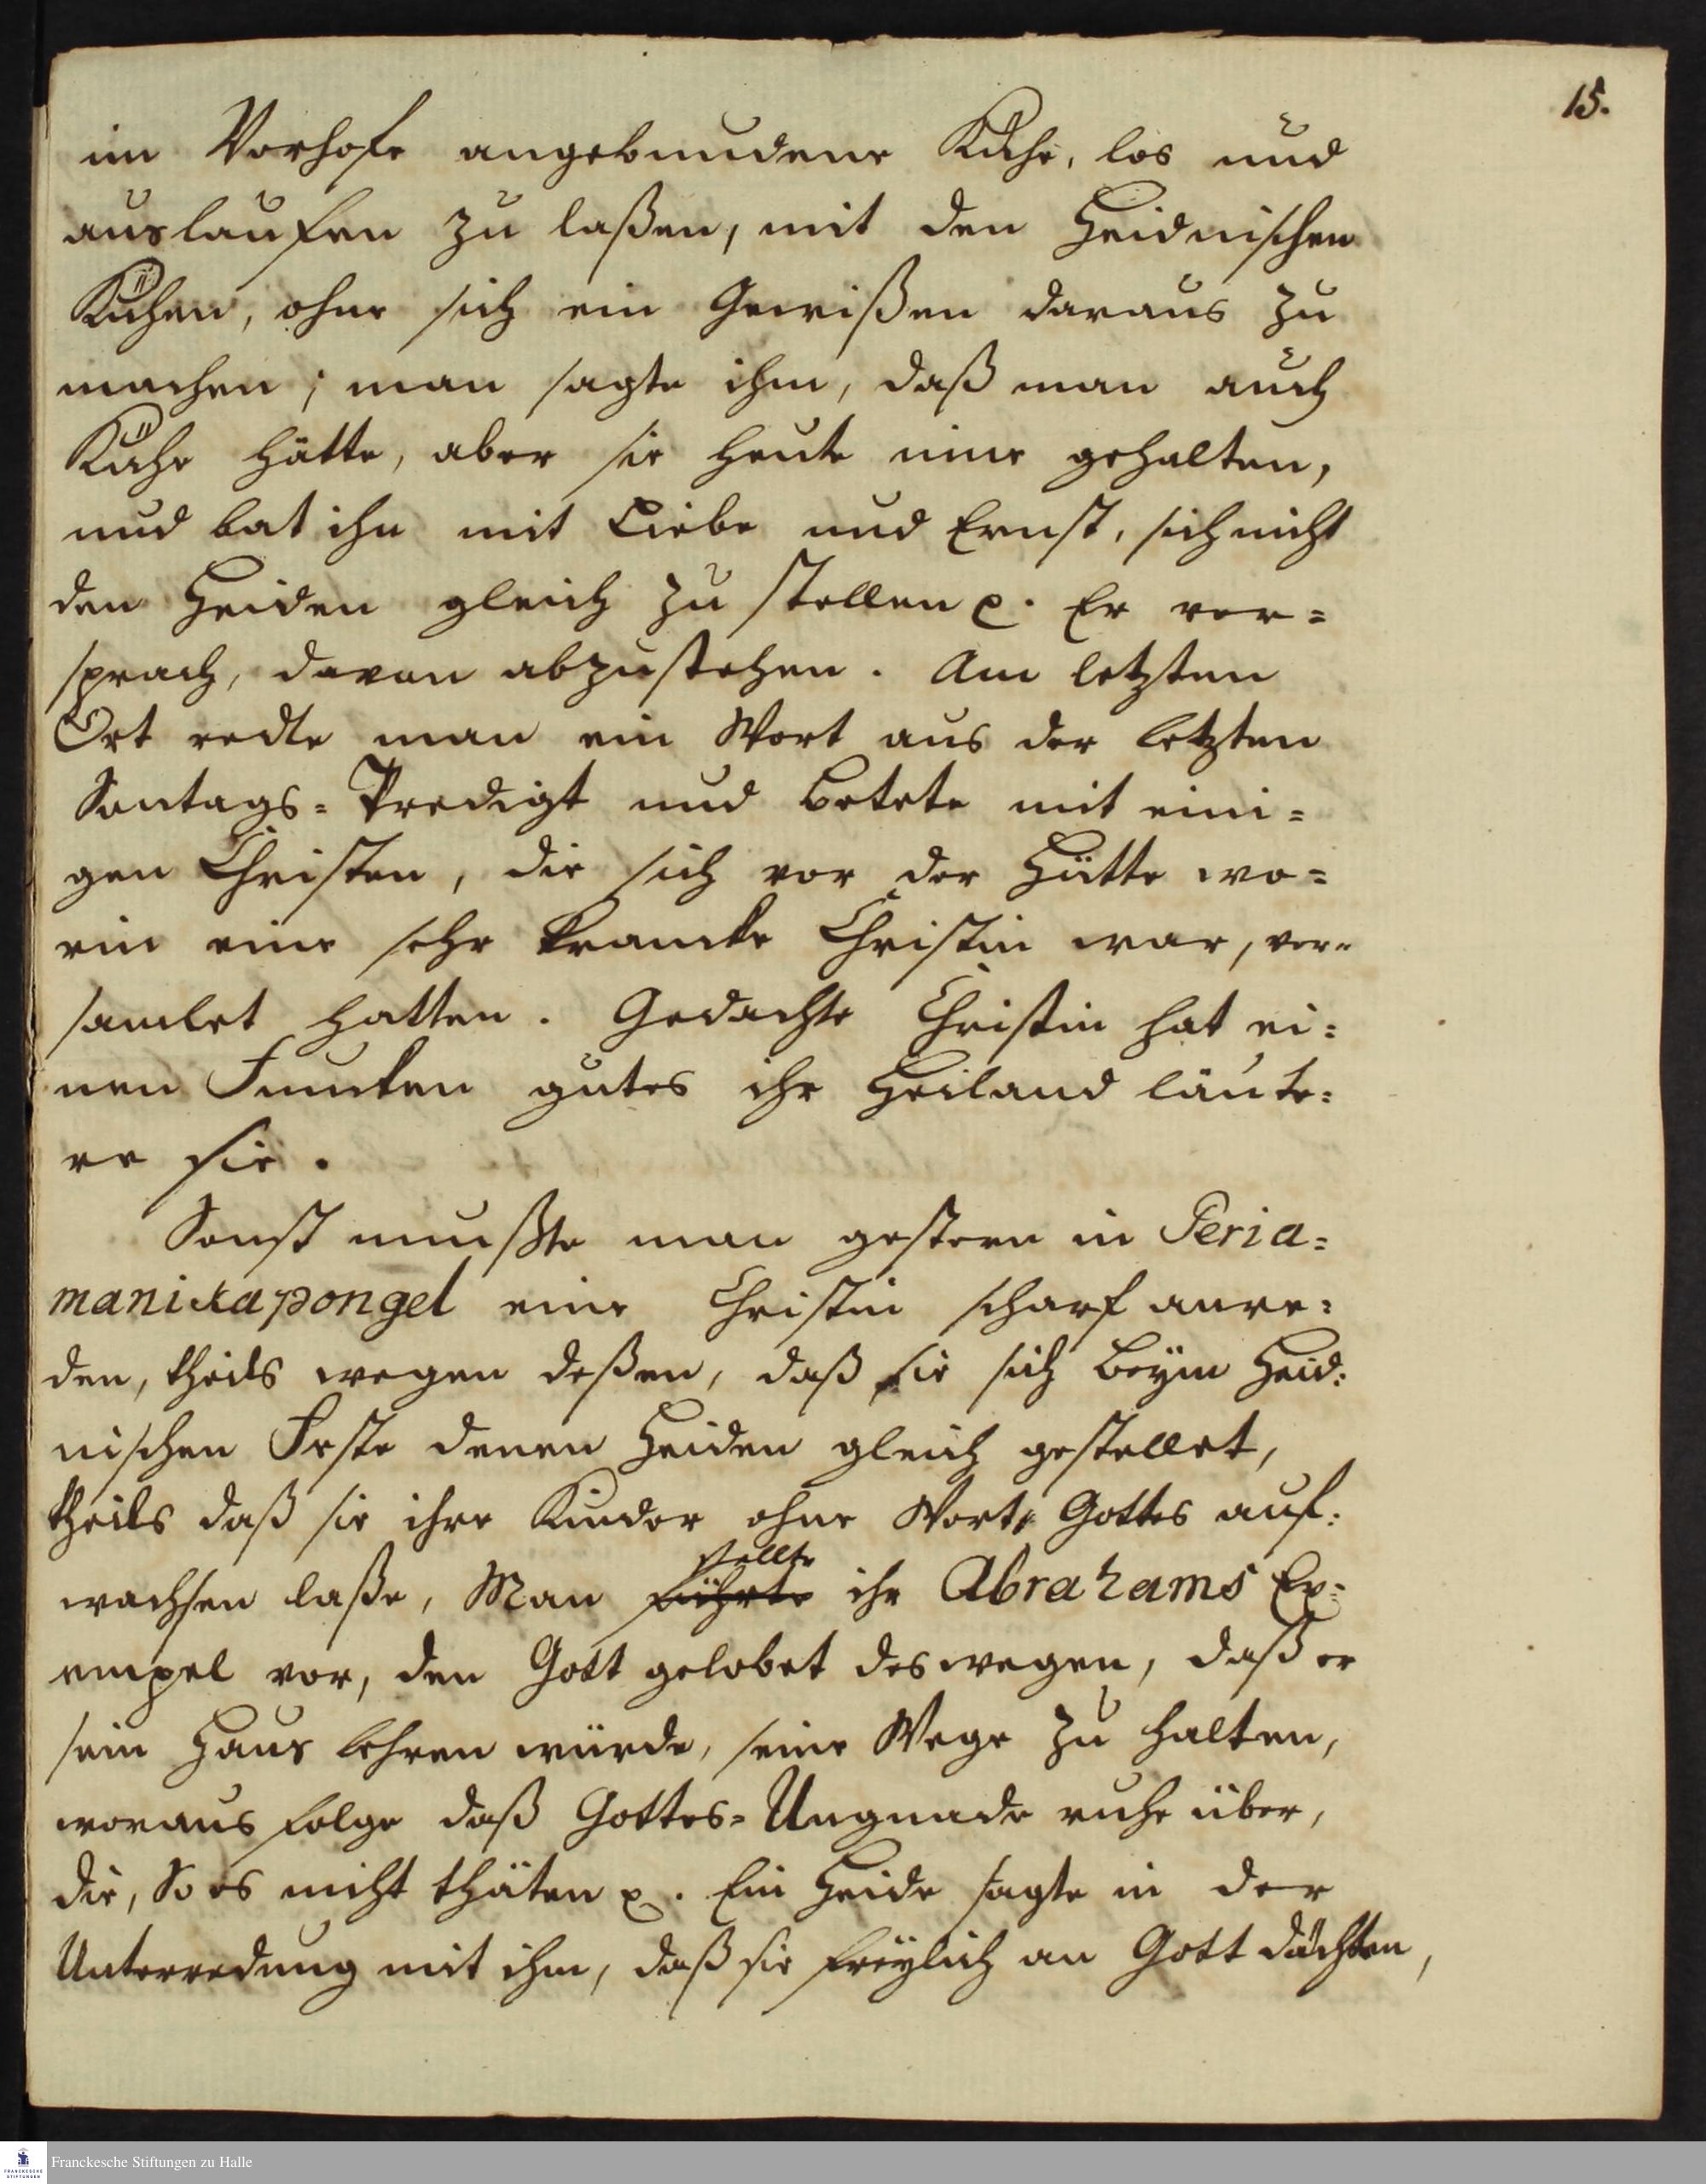 15.
im Vorhofe angebundene Kühe, los und
auslaufen zu laßen, mit den Heidnischen
Kühen, ohne sich ein Gewißen daraus zu
machen; man sagte ihm, daß man auch
Kühe hätte, aber sie heute inne gehalten,
und bat ihn mit Liebe und Ernst, sich nicht
den Heiden gleich zu stellen p. Er ver=
sprach, davon abzustehen. Am letzten
Ort redte man ein Wort aus der letzten
Sontags=Predigt und betete mit eini=
gen Christen, die sich vor der Hütte wo=
rin eine sehr krancke Christin war, ver=
samlet hatten. Gedachte Christin hat ei=
nen Funcken gutes ihr Heiland läute=
re sie.
Sonst mußte man gestern in Peria=
manikapongel eine Christin scharf anre=
den, theils wegen deßen, daß sie sich beym Heid=
nischen Feste denen Heiden gleich gestellet,
theils daß sie ihre Kinder ohne Wort Gottes auf=
wachsen laße, Man führte stellte ihr Abrahams Ex=
empel vor, den Gott gelobet deswegen, daß er
sein Haus lehren würde, seine Wege zu halten,
woraus folge daß Gottes=Ungnade ruhe über,
die, So es nicht thäten p. Ein Heide sagte in der
Unterredung mit ihm, daß sie freylich an Gott dächten,
Franckesche Stiftungen zu Halle
FRANCKESCHE
STIFTUNGEN